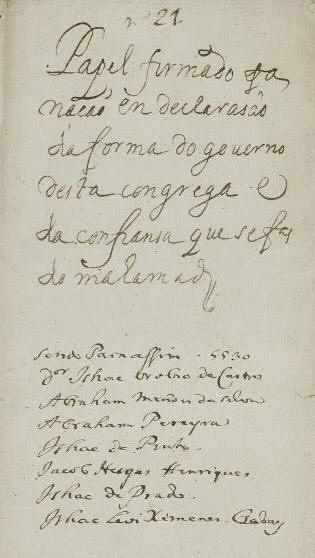 nº 21
Papel firmado pa
nação en declarasão
da forma do governo
desta congrega e
da confiansa que se fas
do mahamad
sendo Parnassim 5530
dor Ishac orobio de Castro
Abraham Mendes da Silva
Abraham Pereyra
Ishac de Pinto
Jacob Henriques
Ishac de Prado
Ishac Levi Ximenes Gabay